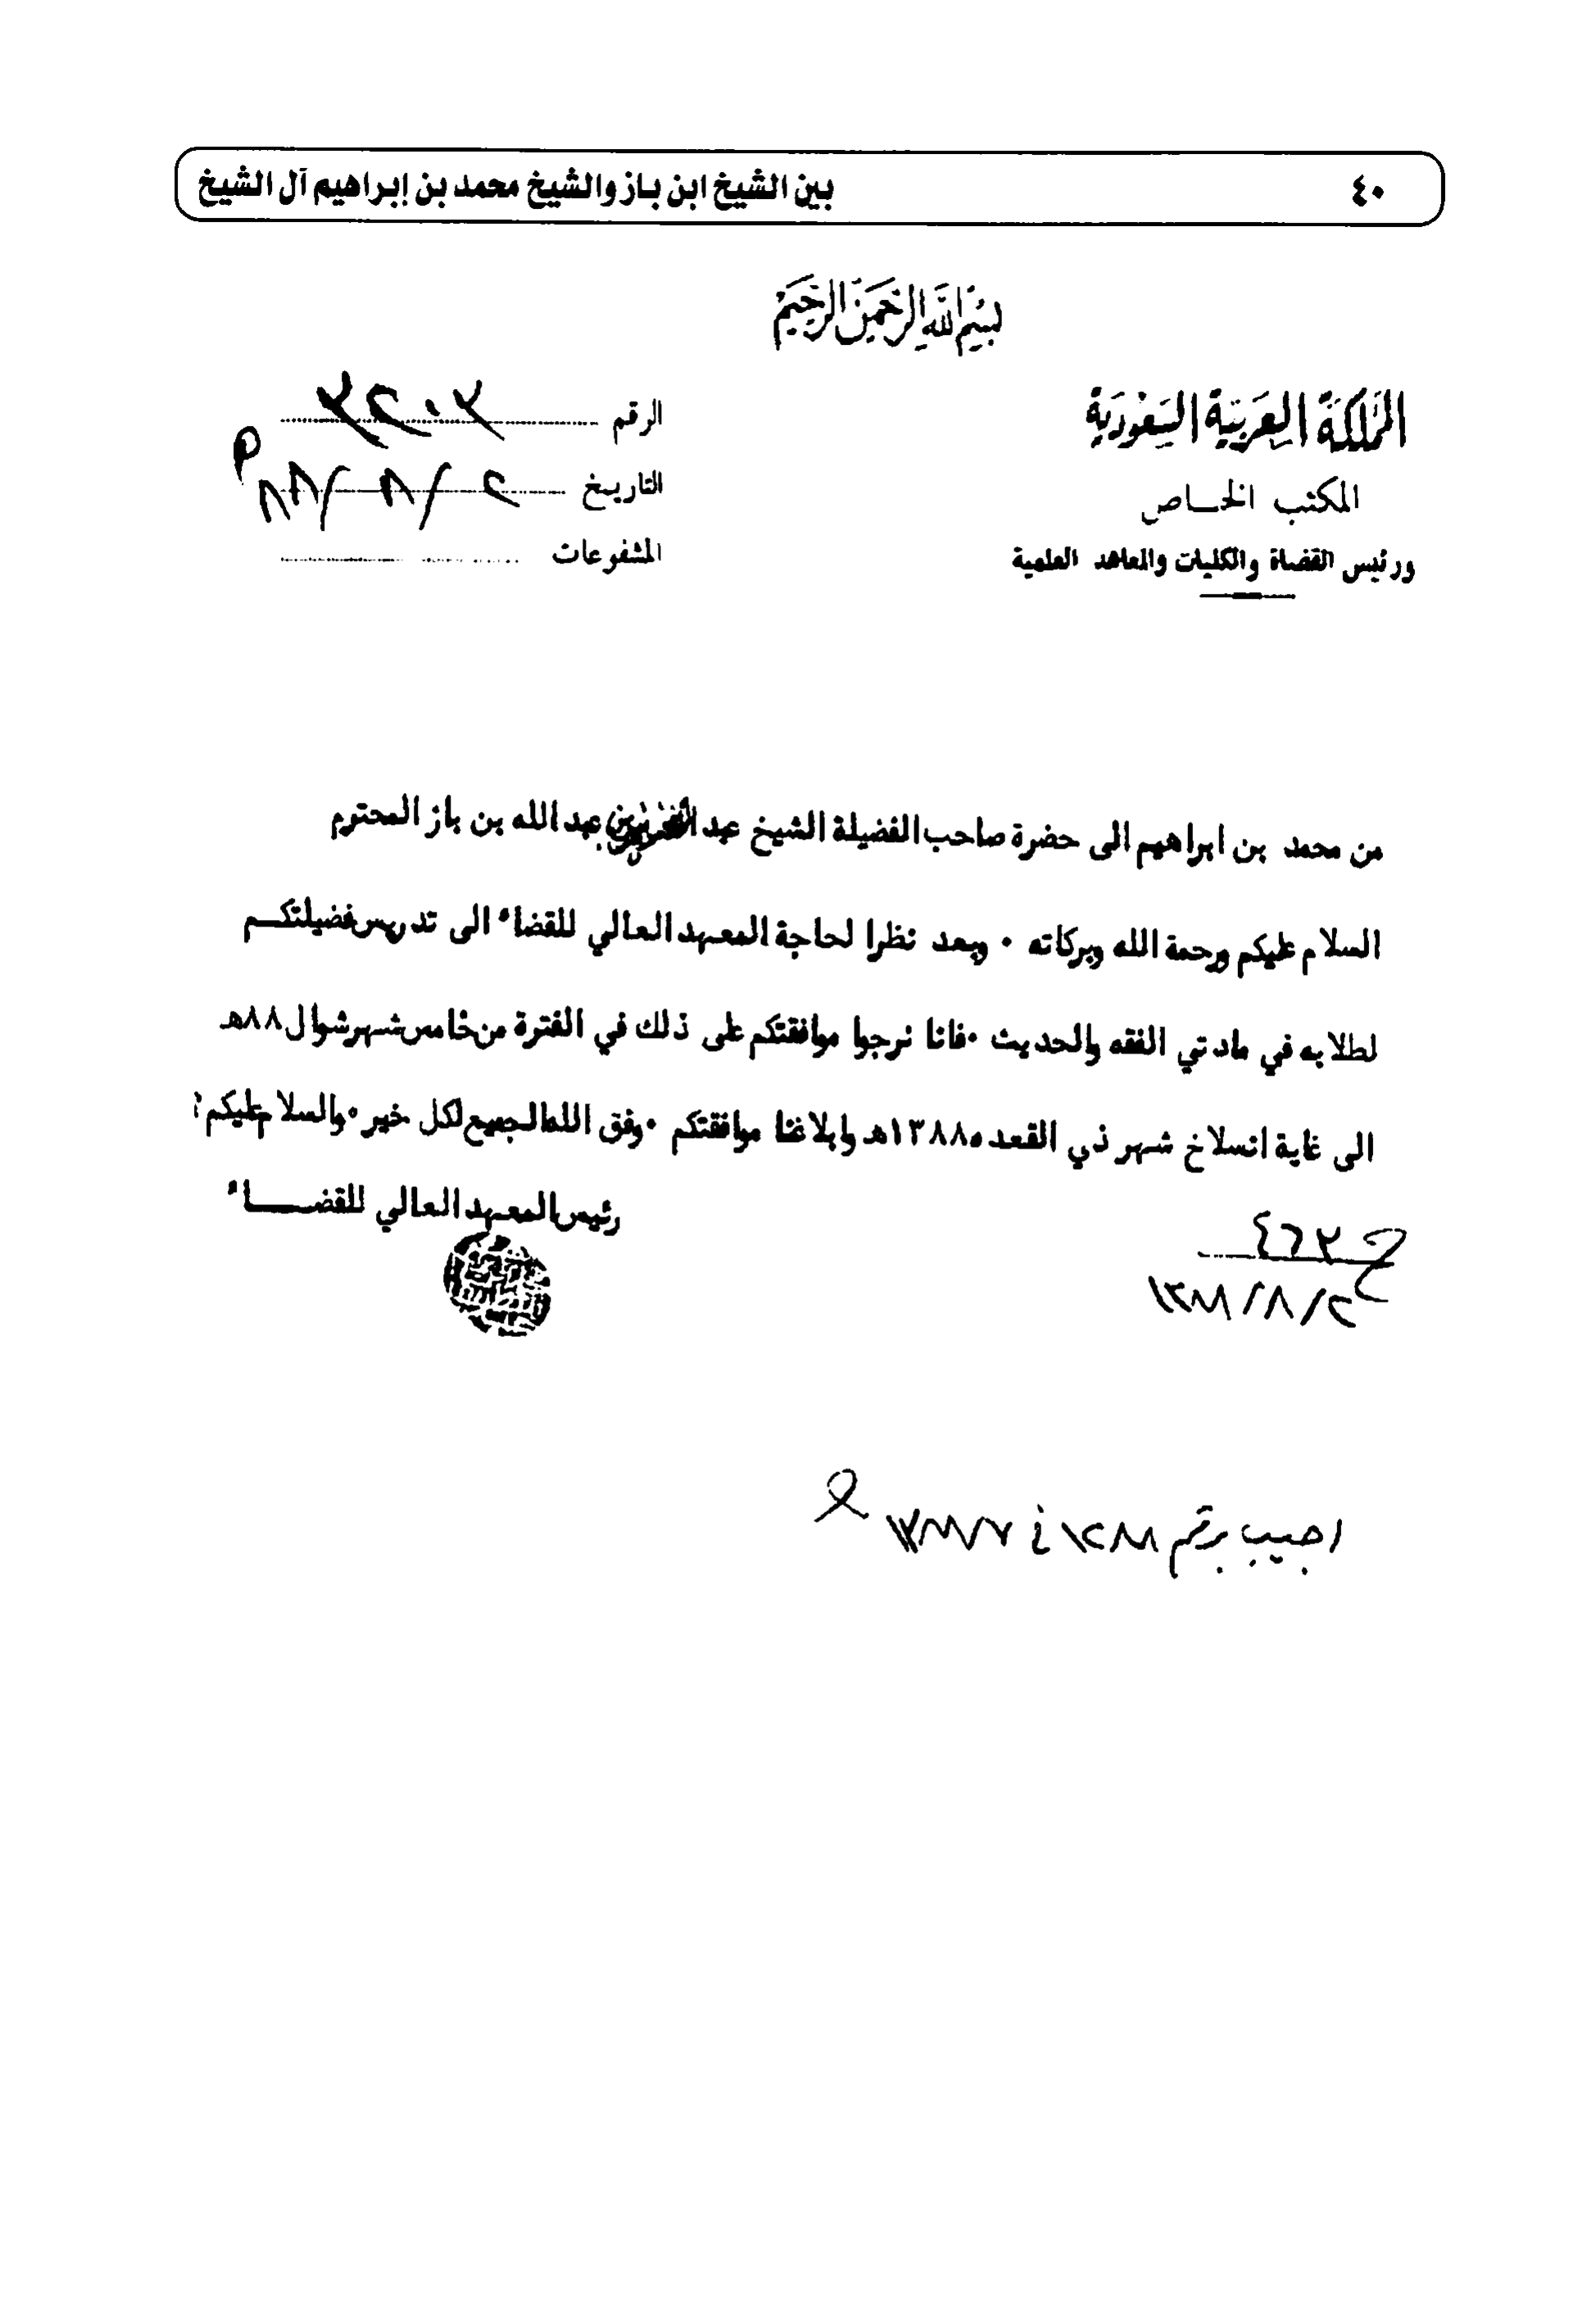 ٤٠
بين الشيخ ابن باز والشيخ محمد بن إبراهيم آل الشيخ
بسم الله الرحمن الرحيم
المملكة العربية السعودية
المكتب الخاص
ورئيس القضاة والكليات والمعاهد العلمية
الرقم
التاريخ ٢/٨/٨٨
المشفوعات
من محمد بن ابراهيم الى حضرة صاحب الفضيلة الشيخ عبد العزيز بن عبد الله بن باز المحترم
السلام عليكم ورحمة الله وبركاته ٠ وبعد نظرا لحاجة المعهد العالي للقضاء الى تدريس فضيلتكم
لطلابه في مادتي الفقه والحديث ٠ فانا نرجوا موافقتكم على ذلك في الفترة من خامس شهر شوال ٨٨هـ
الى غاية انسلاخ شهر ذي القعده ١٣٨٨هـ وابلاغنا موافقتكم ٠ وفق الله الجميع لكل خير ٠ والسلام عليكم
رئيس المعهد العالي للقضاء
٤٦٣
١٣٨٨/٨/٢
اجيب برقم ١٢٨٨ في